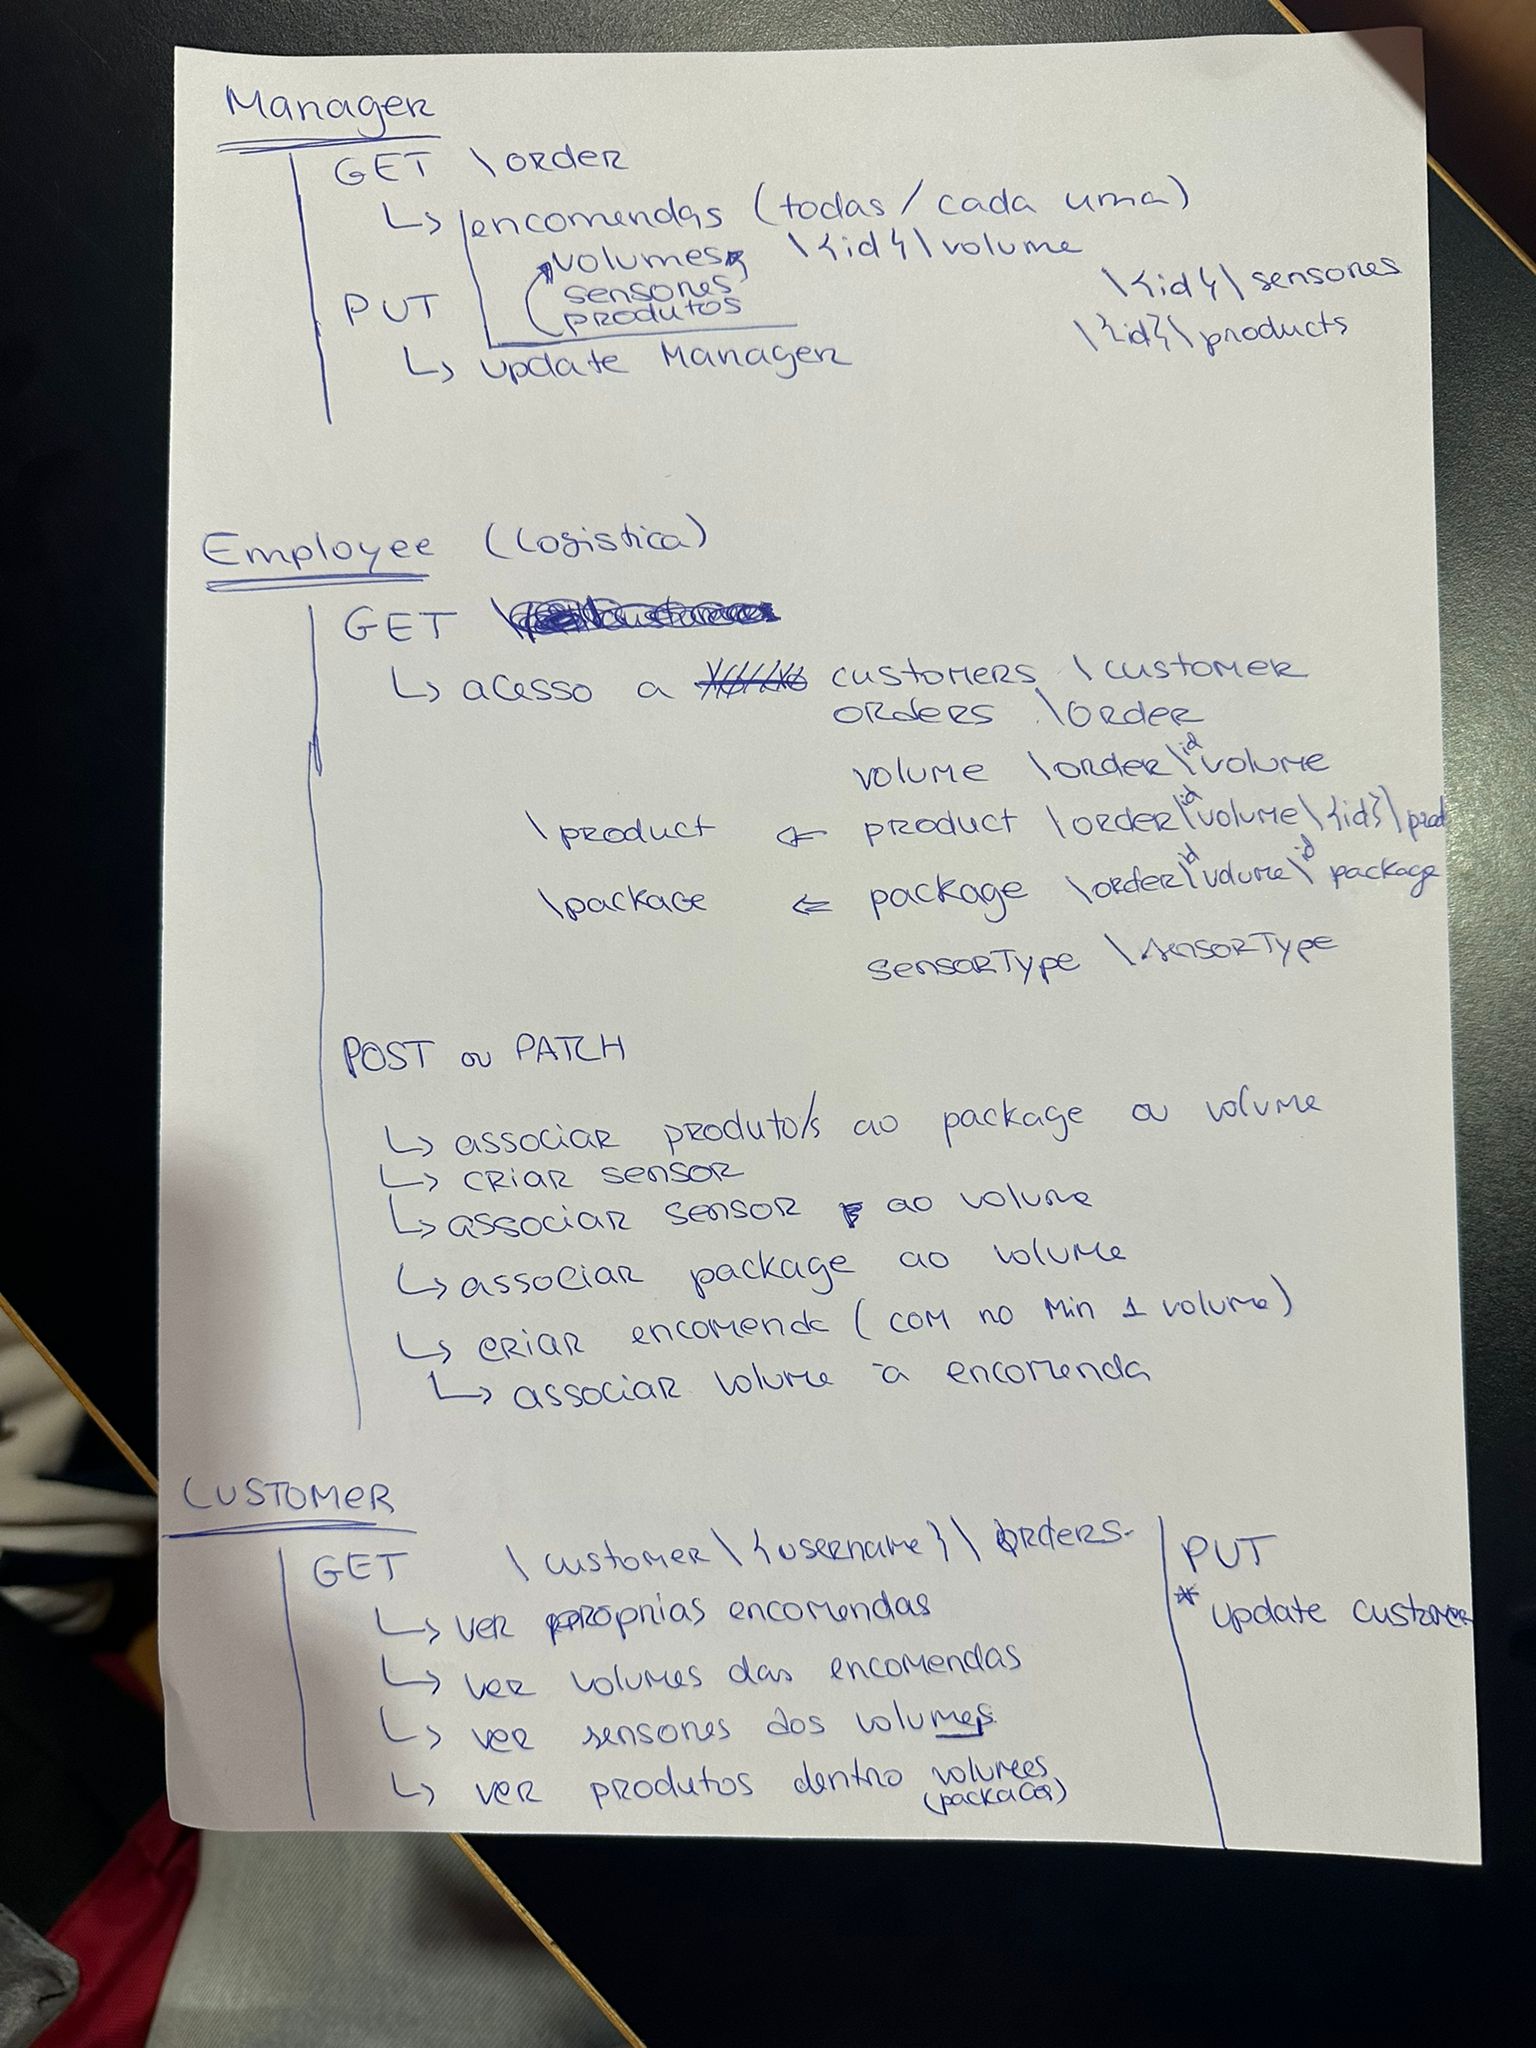 Manager
GET \order
↳ encomendas (todas / cada uma)
volumes \{id}\volume
sensores \{id}\sensores
PUT
produtos \{id}\products
↳ update Manager
Employee (logistica)
GET
↳ acesso a customers \customer
orders \order
volume \order\id\volume
\product ⇐ product \order\id\volume\{id}\prod
\package ⇐ package \order\id\volume\id\package
sensorType \sensorType
POST ou PATCH
↳ associar produto/s ao package ou volume
↳ criar sensor
↳ associar sensor ao volume
↳ associar package ao volume
↳ criar encomenda (com no min 1 volume)
↳ associar volume à encomenda
Customer
GET \customer\{username}\orders
↳ ver próprias encomendas
↳ ver volumes das encomendas
↳ ver sensores dos volumes
↳ ver produtos dentro volumes
(packages)
PUT
* update customer